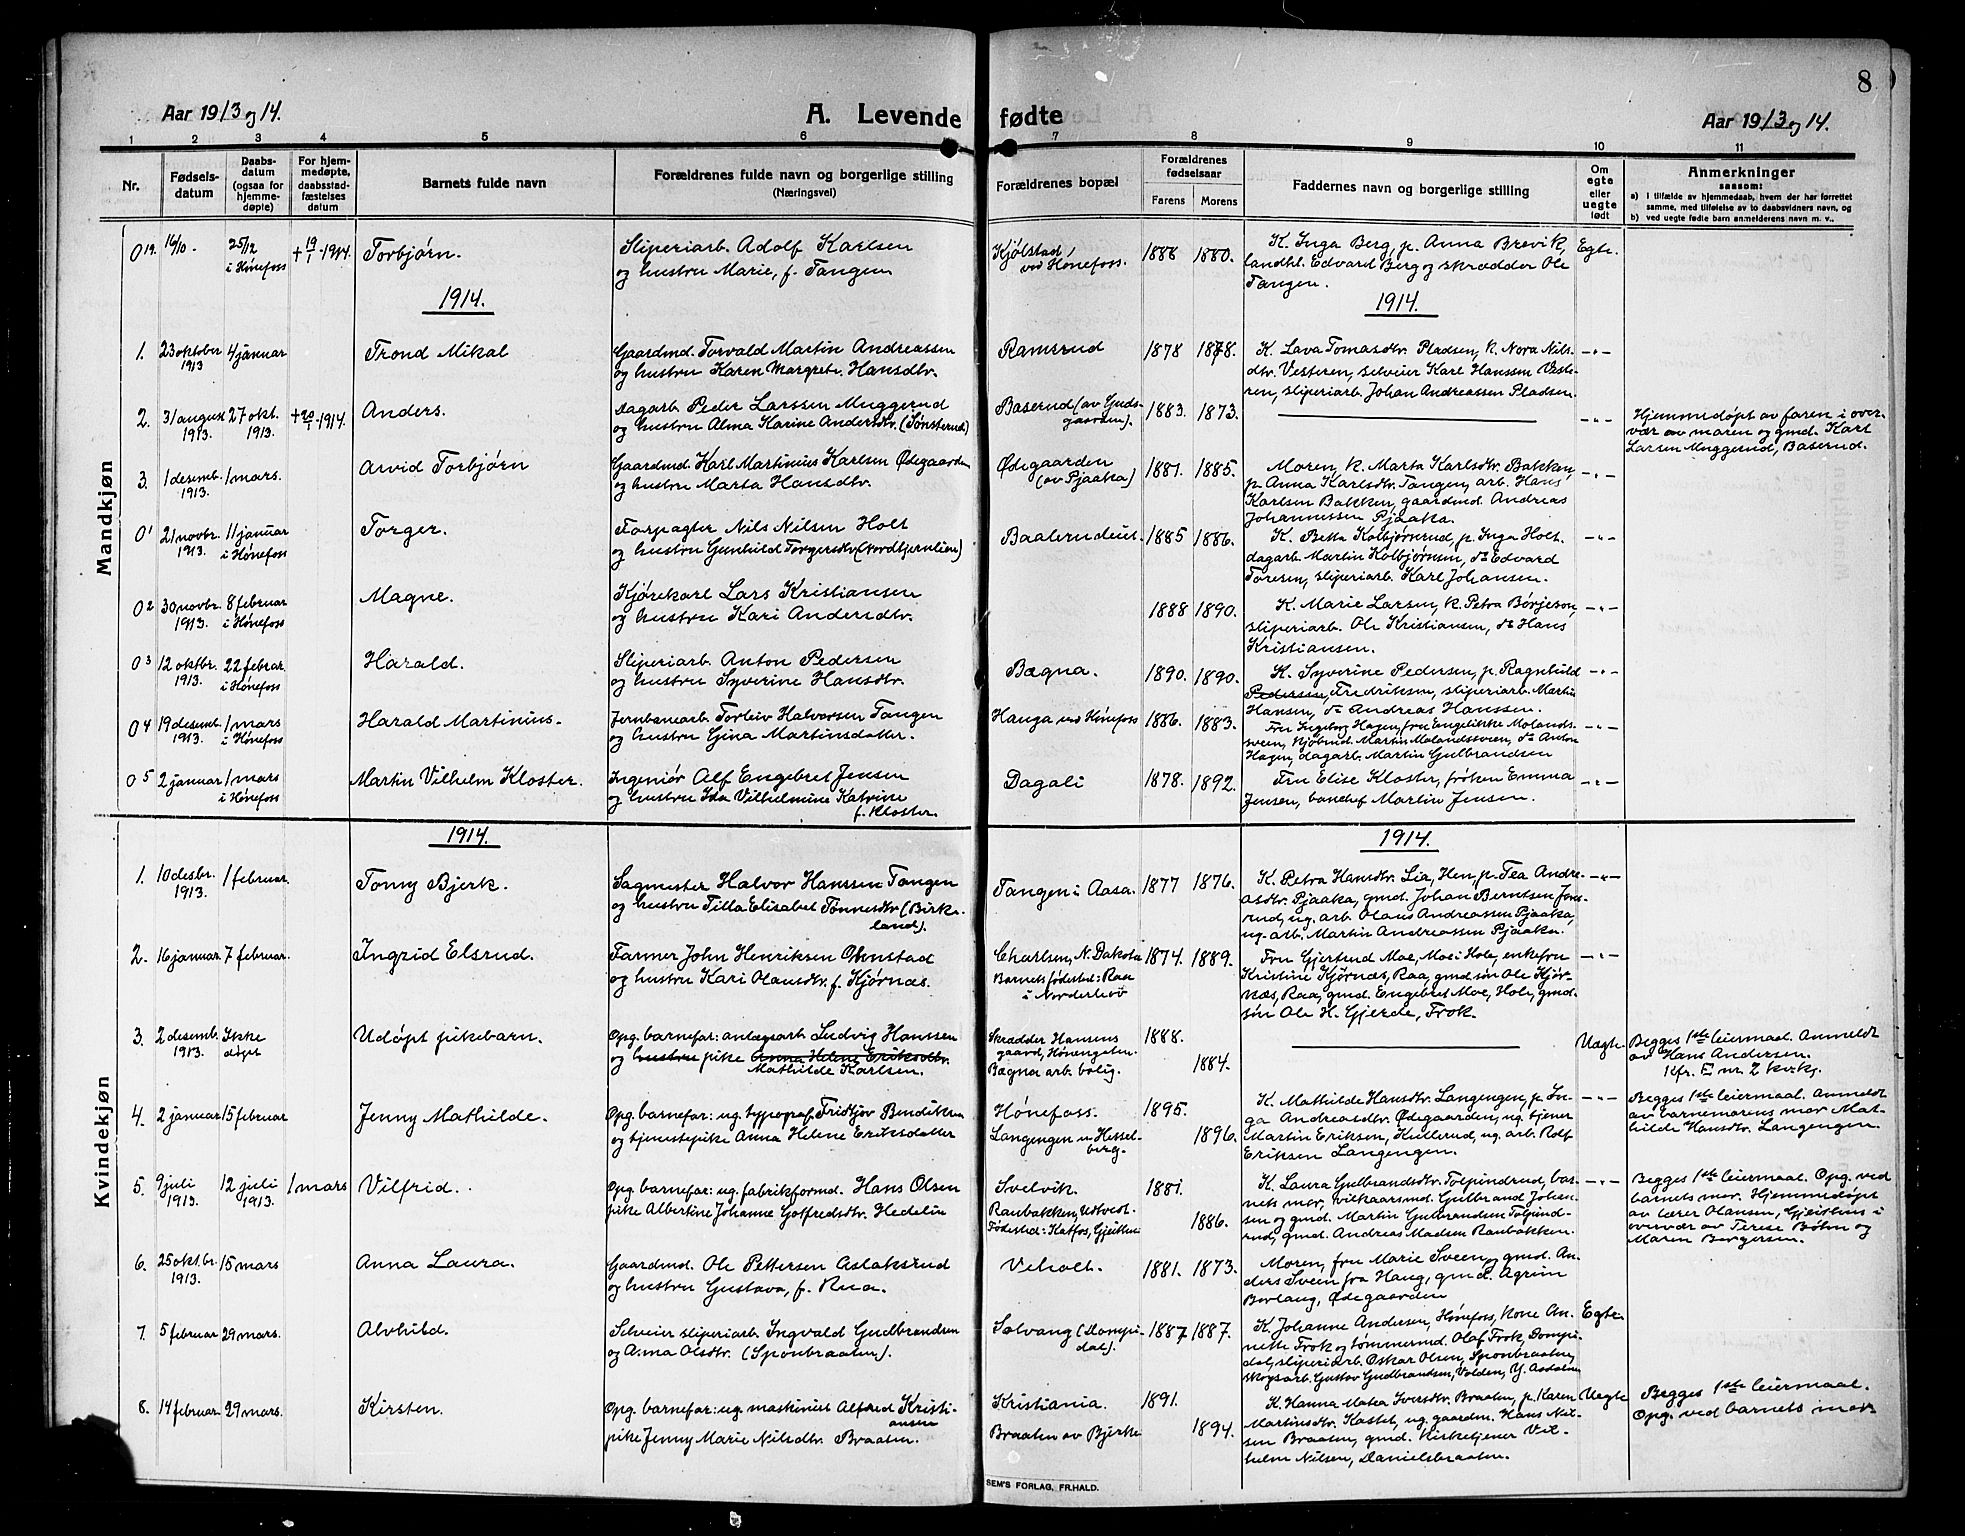 8
Aar 1913 og 14.
A. Levende fødte
Aar 1913 og 14.
1 2 3 4 5 6 7 8 9 10 11
Nr.
Fødsels-
datum
Daabs-
datum
(ogsaa for
hjemme-
døpte)
For hjem-
medøpte,
daabsstad-
fæstelses
datum
Barnets fulde navn
Forældrenes fulde navn og borgerlige stilling
(Næringsvei)
Forældrenes bopæl
Forældrenes
fødselsaar
Farens Morens
Faddernes navn og borgerlige stilling
Om
egte
eller
uegte
født
Anmerkninger
saasom:
a) i tilfælde av hjemmedaab, hvem der har forrettet
samme, med tilføielse av to daabsvidners navn, og
b) ved uegte fødte barn anmelderens navn m. v..
Mandkjøn
019. 16/10. 25/12 i Hönefoss + 19/1 1914. Torbjørn.
Sliperiarb. Adolf Karlsen
og hustru Marie, f. Tangen
Kjølstad,
ved Hönefoss.
1888 1880.
K. Inga Berg, p. Anna Brevik,
landhl. Edvard Berg og skrædder Ole
Tangen.
Egte.
1914.
1914.
1. 23 oktober 1913 4 januar Trond Mikal
Gaardmd. Torvald Martin Andreassen
og hustru Karen Margrete Hansdtr.
Ramsrud
1878 1878.
K. Lava Tomasdtr. Pladsen, k. Nora Nils-
dtr. Vesteren, selveier Karl Hanssen Veste-
ren, sliperiarb. Johan Andreassen Pladsen.
-"-
2. 31 august 1913. 27 okt. 1913. + 20/1 1914. Anders.
dagarb. Peder Larssen Muggerud
og hustru Alma Karine Andersdtr. (Sønsterud)
Baserud (av Guds-
gaarden).
1883. 1873.
-"-
Hjemmedøpt av faren i over-
vær av moren og gmd. Karl
Larsen Muggerud, Baserud.
3. 1 desemb. 1913. 1 mars. Arvid Torbjørn
Gaardmd. Karl Martinius Karlsen Ødegaarden
og hustru Marta Hansdtr.
Ødegaarden
(av Pjaaka)
1881. 1885.
Moren, k. Marta Karlsdtr. Bakken,
p. Anna Karlsdtr. Tangen, arb. Hans
Karlsen Bakken, gaardmd. Andreas
Johannessen Pjaaka.
-"-
01 21 novbr. 1913. 11 januar i Hönefoss Torger.
Forpagter Nils Nilsen Holt
og hustru Gunhild Torgersdtr. (Nordbjernlien)
Baalerudeiet.
1885 1886.
K. Betta Kolbjørnrud, p. Inga Holt.
dagarb. Martin Kolbjørnsen, do Edvard
Toresen, sliperiarb. Karl Johansen.
-"-
02 30 novbr. 1913. 8 februar i Hönefoss Magne.
Kjørekarl Lars Kristiansen
og hustru Kari Andersdtr.
1888 1890.
K. Marie Larsen, k. Petra Börjeson,
sliperiarb. Ole Kristiansen, do Hans
Kristiansen.
-"-
03 12 oktbr. 1913. 22 februar. i Hönefoss Harald.
Sliperiarb. Anton Pedersen
og hustru Syverine Hansdtr.
Bægna.
1890. 1890.
K. Syverine Pedersen, p. Ragnhild
Pedersen, Fredriksen, sliperiarb. Martin
Hansen, do Andreas Hanssen.
-"-
04 19 desemb. 1913. 1 mars i Hönefoss Harald Martinius.
Jernbanearb. Torleiv Halvorsen Tangen
og hustru Gina Martinsdatter.
Hauga ved Hönefoss
1886. 1883.
Fru Ingeborg Hagen, fru Engelikke Molands-
sveen, kjøbmd. Martin Molandsveen, do Anton
Hagen, dagarb. Martin Gulbrandsen
-"-
05 2 januar 1 mars i Hönefoss Martin Vilhelm Kloster.
Ingeniør Alf Engebret Jensen
og hustru Ida Vilhelmine Katrine
f. Kloster.
Dagali
1878. 1892.
Fru Elise Kloster, frøken Emma
Jensen, banchef Martin Jensen.
-"-
Kvindekjøn
1914.
1914.
1. 10 desbr. 1913. 1 februar. Tonny Bjerk.
Sagmester Halvor Hanssen Tangen
og hustru Tilla Elisabet Tønnesdtr (Birke-
land).
Tangen i Aasa.
1877 1876.
K. Petra Hansdtr. Lia, Hen, p. Tea Andre-
asdtr. Pjaaka, gmd. Johan Berntsen Jons-
rud, ug. arb. Olaus Andreassen Pjaaka,
ug. arb. Martin Andreassen Pjaaka.
-"-
2. 16 januar 7 februar. Ingrid Elsrud.
Farmer John Henriksen Omstad
og hustru Kari Olausdtr. f. Kjørnæs.
Charlsen, N. Dakota
Barnets fødested: Raa
i Norderhov
1874. 1889.
Fru Gjertrud Moe, Moe i Hole, enkefru
Kristine Kjørnæs, Raa, gmdsön Ole Kjør-
næs, Raa, gmd. Engebret Moe, Hole, gmd-
sön Ole H. Gjerde, Frok.
-"-
3. 2 desemb. 1913. Ikke døpt Udøpt pikebarn.
Opg. barnefar: anlægsarb. Ludvig Hanssen
og hustru pike Anna Helene Eriksdtr.
Mathilde Karlsen.
Skrædder Hansens
gaard, Hönengaten.
Bægna arb. bolig.
1888.
1884.
Uegte.
Begges 1ste leiermaal. Anmeldt
av Hans Andersen.
Kfr. E nr. 2 kvkj.
4. 2 januar 15 februar Jenny Mathilde.
Opg. barnefar: ug. typograf Fridtjov Bendiksen
og tjenestepike Anna Helene Eriksdatter
Hönefoss.
Langengen u Hessel-
berg.
1895.
1896.
K. Mathilde Hansdtr. Langengen, p. In-
ga Andreasdtr. Ødegaarden, ug. tjener
Martin Eriksen, Kullerud, ug. arb. Rolf
Eriksen Langengen.
-"-
Begges 1ste leiermaal. Anmeldt
av barnemorens mor Mat-
hilde Hansdtr. Langengen.
5. 9 juli 1913. 12 juli 1913. 1 mars Vilfrid.
Opg. barnefar: ug. fabrikformd. Hans Olsen
pike Albertine Johanne Gotfredsdtr. Hedelin
Svelvik.
Raubakken, Utvedt
Fødested: Katfos, Gjeithus
1881.
1886.
K. Laura Gulbrandsdtr. Tolpindrud, bar-
nets mor, vilkaarsmd. Gulbrand Johan-
sen og gmd. Martin Gulbrandsen Tolpind-
rud, gmd. Andreas Madsen Raubakken.
-"-
Begges 1ste leiermaal. Opg. ved
barnets mor. Hjemmedøpt
av lærer Olausen, Gjeithus i
overvær av Terese Böhn og
Maren Borgersen.
6. 25 oktbr. 1913. 15 mars Anna Laura.
Gaardmd. Ole Pettersen Aslaksrud
og hustru Gustava, f. Rua.
Veholt.
1881. 1873.
Moren, fru Marie Sveen, gmd. An-
ders Sveen fra Haug, gmd. Agrim
Berlaug, Ødegaarden
7. 5 februar 29 mars. Alvhild.
Selveier sliperiarb. Ingvald Gudbrandsen
og Anna Olsdtr. (Sponbraaten).
Solvang (Dompi-
dal).
1887 1887.
K. Johanne Andersen, Hönefoss, kone An-
nette Frok og tømmermd. Olaf Frok, Dompi-
dal, sliperiarb. Oskar Olsen, Sponbraaten,
skogsarb. Gustav Gudbrandsen, Volden, Y. Aadalen
Egte.
8. 14 februar 29 mars. Kirsten.
Opg. barnefar: ug. maskinist Alfred Kristi-
ansen
pike Jenny Marie Nilsdtr. Braaten.
Kristiania.
Braaten av Bjerke
1891.
1894.
K. Hanna Matea Iversdtr. Braaten, p. Karen
Martinsdtr. Kastet, ug. gaardm. Hans Nil-
sen Braaten, gmd. Kirketjener Vil-
helm Nilsen, Danielsbraaten.
Uegte
Begges 1ste leiermaal.
Opg. ved barnets mor
SEM'S FORLAG, FR.HALD.